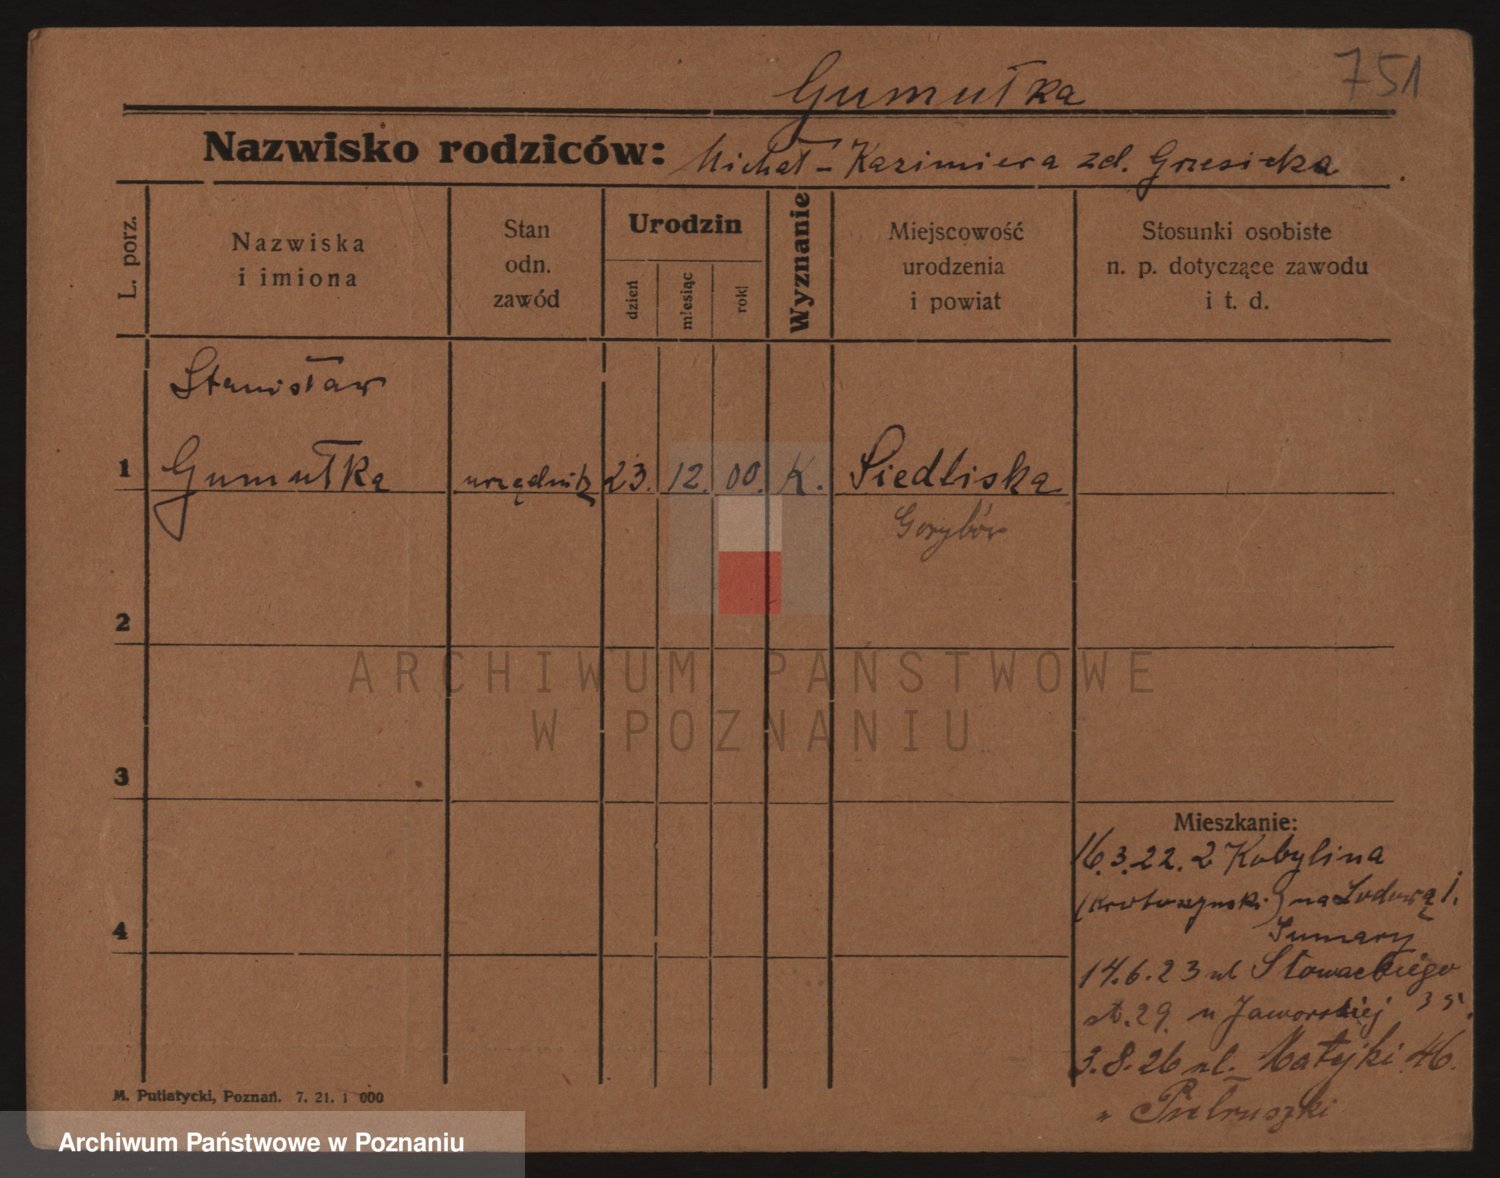 751
Gumułka
Nazwisko rodziców: Michał - Kazimiera zd. Grzesicka
L. porz.
Nazwiska
i imiona
Stan
odn.
zawód
Urodzin
dzień
miesiąc
rok
Wyznanie
Miejscowość
urodzenia
i powiat
Stosunki osobiste
n. p. dotyczące zawodu
i t. d.
Stanisław
1 Gumułka urzędnik 23. 12. 00. K. Siedliska
2
ARCHIWUM PAŃSTWOWE
W POZNANIU
3
Mieszkanie:
16.3.22. z Kobylina
(krotoszyński) na
4
14.6.23 ul Słowackiego
29. u Jaworskiej
3.8.26 ul. Matejki 46.
M. Putiatycki, Poznań. 7. 21. 1 000
Archiwum Państwowe w Poznaniu